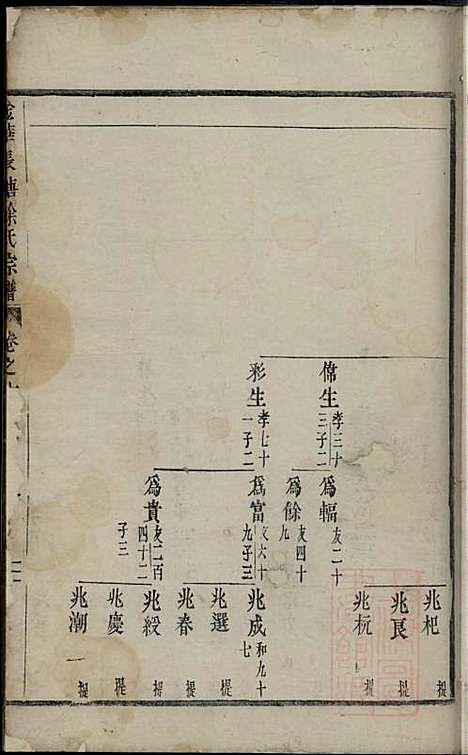 金華長塘徐氏宗譜
卷之
偉生
孝三十
三子二
彩生
孝七十
一子二
為輻
友二十
為餘
友四十
九
為富
友六十
九子三
為貴
友二百
四十二
子三
兆杞
提
兆良
提
兆杬
提
兆成
和九十
七
兆選
提
兆春
提
兆綬
提
兆慶
提
兆潮
一
提